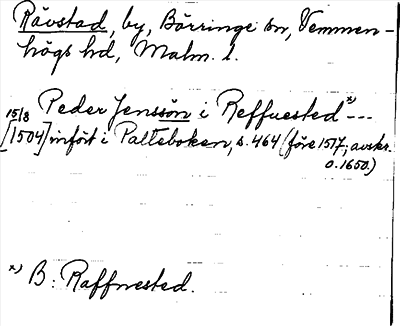 Rävstad, by, Börringe sn, Vemmen-
högs hd, Malm. l.
15/8 Peder Jensson i Reffuested x) ---
[1504] infört i Palteboken, s. 464 (före 1517; avskr.
o. 1650.)
x) B: Raffnested.